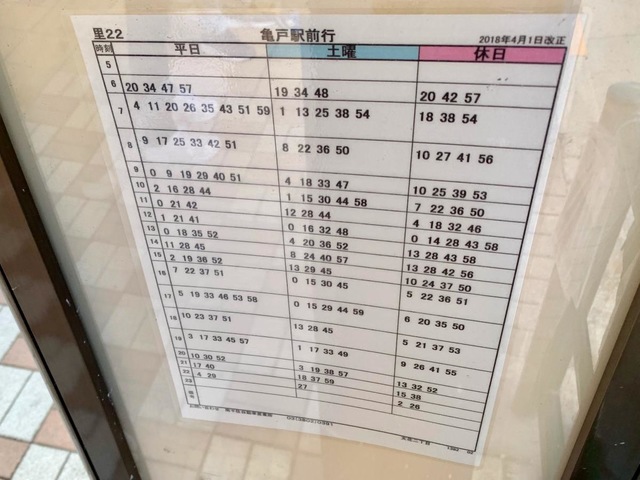 里22 亀戸駅前行 2018年4月1日改正
時刻 平日 土曜 休日
5
6 20 34 47 57 19 34 48 20 42 57
7 4 11 20 26 35 43 51 59 1 13 25 38 54 18 38 54
8 9 17 25 33 42 51 8 22 36 50 10 27 41 56
9 0 9 19 29 40 51 4 18 33 47 10 25 39 53
10 2 16 28 44 1 15 30 44 58 7 22 36 50
11 0 21 42 12 28 44 4 18 32 46
12 1 21 41 0 16 32 48 0 14 28 43 58
13 0 18 35 52 4 20 36 52 13 28 43 58
14 11 28 45 8 24 40 57 13 28 42 56
15 2 19 36 52 13 29 45 10 24 37 50
16 7 22 37 51 0 15 30 45 5 22 36 51
17 5 19 33 46 53 58 0 15 29 44 59 6 20 35 50
18 10 23 37 51 13 28 45 5 21 37 53
19 3 17 33 45 57 1 17 33 49 9 26 41 55
20 10 30 52 3 19 38 57 13 32 52
21 17 40 18 37 59 15 38
22 4 29 27 2 26
23